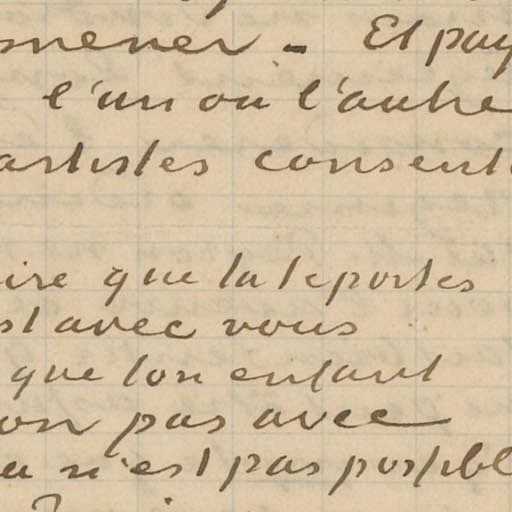 mener - Et pay
l'un ou l'autre
artistes consent
ire que tu te portes
st avec vous
que ton enfant
on pas avec
a n'est pas possibl